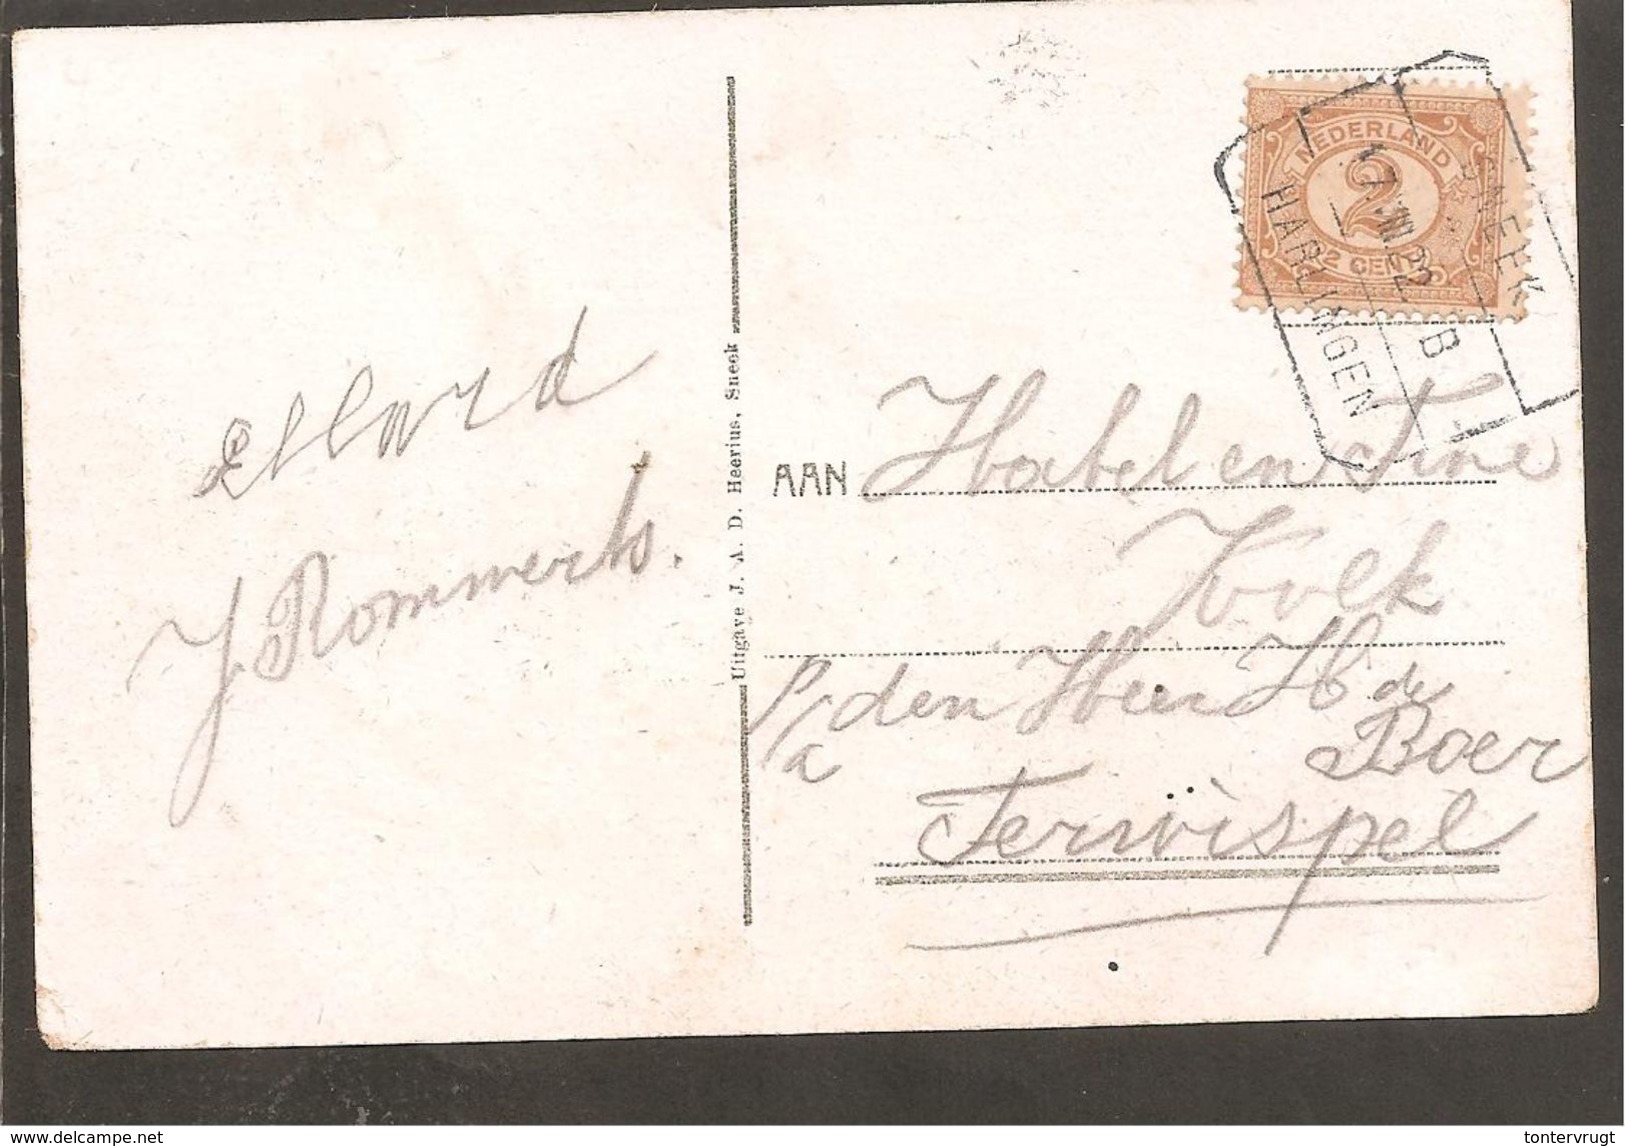 NEDERLAND
2
2 CENT
SNEEK
B
HARLINGEN
Ellard
J. Rommerts.
Uitgave J. A. D. Heerius, Sneek
AAN
en Tine
Kolk
P/a den Heer H de
Boer
Terwispel
delcampe.net
tontervrugt